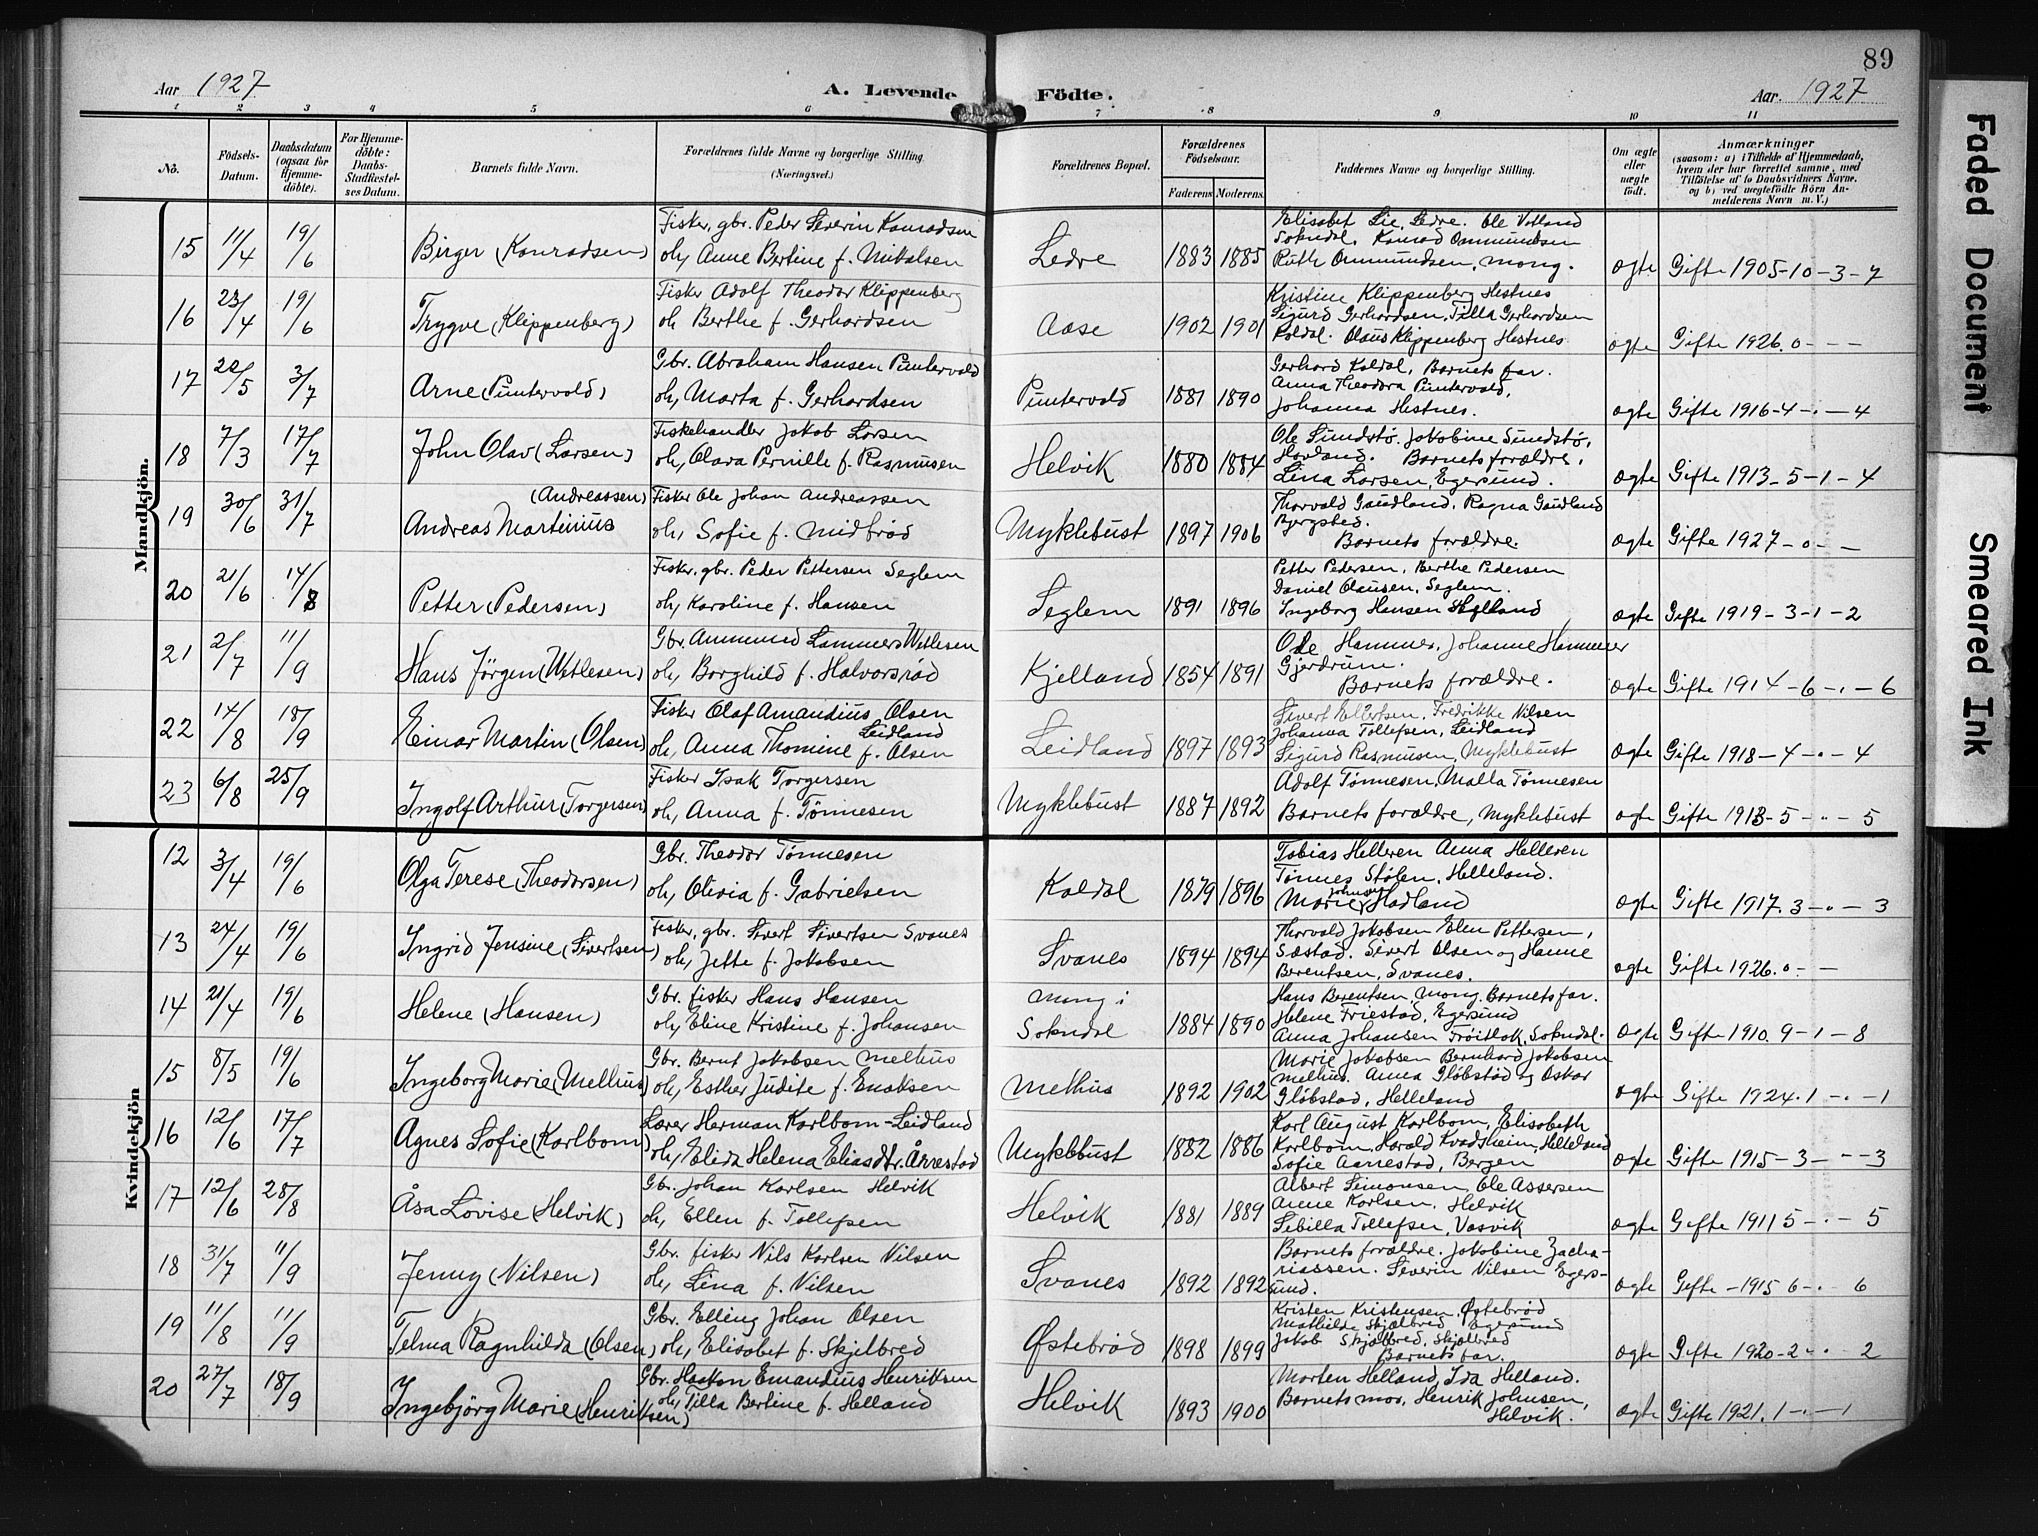 89
Aar 1927
A. Levende Födte.
Aar. 1927
1 2 3 4 5 6 7 8 9 10 11
No.
Födsels-Datum.
Daabsdatum (ogsaa for Hjemme-döbte).
For Hjemme-döbte: Daabs-Stadfæstel-ses Datum.
Barnets fulde Navn.
Forældrenes fulde Navne og borgerlige Stilling. (Næringsvei.)
Forældrenes Bopæl.
Forældrenes Födselsaar.
Faderens Moderens.
Faddernes Navne og borgerlige Stilling.
Om ægte eller uægte födt.
Anmærkninger
(saasom: a) i Tilfælde af Hjemmedaab, hvem der har forrettet samme, med Tilföielse af to Daabsvidners Navne, og b) ved uægtefödte Börn An-melderens Navn m. V.)
Mandkjön.
15 11/4 19/6 Birger (Konradsen) Fisker, gbr. Peder Severin Konradsen oh, Anne Bertine f. Mikalsen Ledre 1883 1885 Elisabet Lie, Ledre. Ole Votland Sokndal. Konrad Ommundsen Ruth Ommundsen, Mong. ægte Gifte 1905-10-3-7
16 23/4 19/6 Trygve (Klippenberg) Fisker Adolf Theodor Klippenberg oh Berthe f. Gerhardsen Aase 1902 1901 Kristine Klippenberg Hestnes Sigurd Gerhardsen, Tilla Gerhardsen Koldal. Olaus Klippenberg Hestnes ægte Gifte 1926. 0 - - -
17 22/5 3/7 Arne (Puntervold) Gbr. Abraham Hansen Puntervold oh, Marta f. Gerhardsen Puntervold 1881 1890 Gerhard Koldal, Barnets far. Anna Theodora Puntervold, Johanna Hestnes. ægte Gifte 1916-4-.-4
18 7/3 17/7 John Olav (Larsen) Fiskehandler Jakob Larsen oh, Olava Pernille f. Rasmusen Helvik 1880 1884 Ole Sundstø. Jakobine Sundstø, Hovland. Barnets forældre. Lina Larsen, Egersund. ægte Gifte 1913-5-1-4
19 30/6 31/7 (Andreassen) Andreas Martinius Fisker Ole Johan Andreassen oh, Sofie f. Midbrød Myklebust 1897 1906 Thorvald Gaudland, Ragna Gaudland Bjergsted. Barnets forældre. ægte Gifte 1927-0-.-
20 21/6 14/8 Petter (Pedersen) Fisker, gbr. Peder Pettersen Seglem oh, Karoline f. Hansen Seglem 1891 1896 Petter Pedersen, Berthe Pedersen Daniel Olausen, Seglem. Ingeborg Hansen ægte Gifte 1919-3-1-2
21 2/7 11/9 Hans Jörgen (Wetlesen) Gbr. Ammund Lammers Wetlesen oh, Borghild f. Halvorsrød Kjelland 1854 1891 Ole Hammer, Johanne Hammer Gjerdrum. Barnets forældre. ægte Gifte 1914-6-.-6
22 14/8 18/9 Einar Martin (Olsen) Fisker Olaf Amandius Olsen Leidland oh, Anna Thomine f. Olsen Leidland 1897 1893 Sivert Ellertsen. Fredrikke Nilsen Johanna Tollefsen, Leidland Sigurd Rasmusen, Myklebust ægte Gifte 1918-4-.-4
23 6/8 25/9 Ingolf Arthur (Torgersen) Fisker Isak Torgersen oh, Anna f. Tönnesen Myklebust 1887 1892 Adolf Tönnesen, Malla Tönnesen Barnets forældre, Myklebust ægte Gifte 1913-5-.-5
Kvindekjön
12 3/4 19/6 Olga Terese (Theodorsen) Gbr. Theodor Tönnesen oh, Olivia f. Gabrielsen Koldal 1879 1896 Tobias Helleren Anna Helleren Tönnes Stölen, Helleland. Marie Johnsen Hadland ægte Gifte 1917. 3-.-3
13 24/4 19/6 Ingrid Jensine (Sivertsen) Fisker, gbr. Sivert Sivertsen Svanes oh, Jette f. Jakobsen Svanes 1894 1894 Thorvald Jakobsen Elen Pettersen, Sæstad. Sivert Olsen og Hanne Berentsen, Svanes. ægte Gifte 1926. 0 - -
14 21/4 19/6 Helene (Hansen) Gbr. fisker Hans Hansen oh, Eline Kristine f. Johansen Mong i Sokndal 1884 1890 Hans Berentsen, Mong. Barnets far. Helene Friestad, Egersund Anna Johansen Sokndal. ægte Gifte 1910. 9-1-8
15 8/5 19/6 Ingeborg Marie (Mellhus) Gbr. Bernt Jakobsen Melhus oh, Esther Judite f. Enoksen Melhus 1892 1902 Marie Jakobsen Bernhard Jakobsen Melhus. Anna Glöbstad og Oskar Glöbstad, Helleland ægte Gifte 1924. 1-.-1
16 12/6 17/7 Agnes Sofie (Karlbom) Lærer Herman Karlbom-Leidland oh, Elida Helena Eliasdtr. Årrestad Myklebust 1882 1886 Karl August Karlbom, Elisabeth Karlbom, Harald Kvadsheim, Helleland Sofie Aarrestad, Bergen ægte Gifte 1915-3-.-3
17 12/6 28/8 Åsa Lovise (Helvik) Gbr. Johan Karlsen Helvik oh, Ellen f. Tollefsen Helvik 1881 1889 Albert Simonsen, Ole Assersen Anne Karlsen, Helvik Sibilla Tollefsen, Vasvik ægte Gifte 1911 5-.-5
18 31/7 11/9 Jenny (Nilsen) Gbr. fisker Nils Karlsen Nilsen oh, Lina f. Nilsen Svanes 1892 1892 Barnets forældre. Jakobine Zacha-riassen. Severin Nilsen Egers-sund. ægte Gifte -1915 6-.-6
19 11/8 11/9 Telma Ragnhilda (Olsen) Gbr. Elling Johan Olsen oh, Elisabet f. Skjelbred Østebrød 1898 1899 Kristen Kristensen, Østebrød Mathilde Skjælbred, Egersund Jakob Skjælbred, Skjælbred Barnets far. ægte Gifte 1920-2-.-2
20 27/7 18/9 Ingebjörg Marie (Henriksen) Gbr. Haakon Emandius Henriksen oh, Tilla Bertine f. Helland Helvik 1893 1900 Morten Helland, Ida Helland. Barnets mor, Henrik Johnsen, Helvik. ægte Gifte 1921. 1-.-1
Faded Document
Smeared Ink